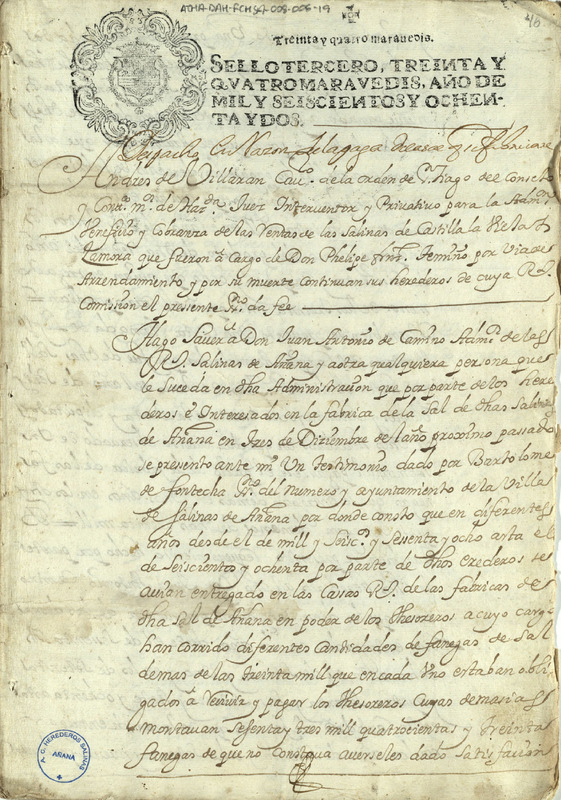 ATHA-DAH-FCHSA-008-006-19
Treinta y quatro maravedis.
SELLO TERCERO, TREINTA Y
QVATRO MARAVEDIS, AÑO DE
MIL Y SEISCIENTOS Y OCHEN-
TA Y DOS.
Despacho en Razon de la paga
Andres de Villaran Cauº. de la orden de S.tiago de el Consejo
y Conta. mr. de Hazda. Juez Interventor y Privativo para la Admon.
Veneficio y Cobranza de las Ventas de las Salinas de Castilla la Vieja
Zamora que fueron â Cargo de Don Phelipe por via de
Arrendamiento y por su muerte continuan sus herederos de cuya Rl.
Comission el presente ssno. da fee
Hago Saver â Don Juan Antonio de Camino Admor. de las
Rs. Salinas de Añana y a otra qualquiera persona que
le suceda en dha Administracion que por parte de los here
deros e Interesados en la fabrica de la Sal de dhas Salinas
de Añana en tres de Diziembre de laño proximo passado
se presento ante mi Un testimonio dado por Bartolome
de fontecha ssno. del numero y ayuntamiento de la Villa
de Salinas de Añana por donde consto que en diferentes
años desde el de mill y seiscos. y sesenta y ocho asta el
de seiscientos y ochenta por parte de dhos erederos se
avian entregado en las Casas Rs. de las fabricas de
dha Sal de Añana en poder de los thesoreros a cuyo cargo
han corrido diferentes Cantidades de fanegas de Sal
demas de las treinta mill que en cada Uno estaban obli
gados â recivir y pagar los thesoreros Cuyas demasias
montavan sesenta y tres mill quatrocientas y treinta
fanegas de que no Constava averseles dado satisfacion
A.G. HEREDEROS SALINAS
AÑANA